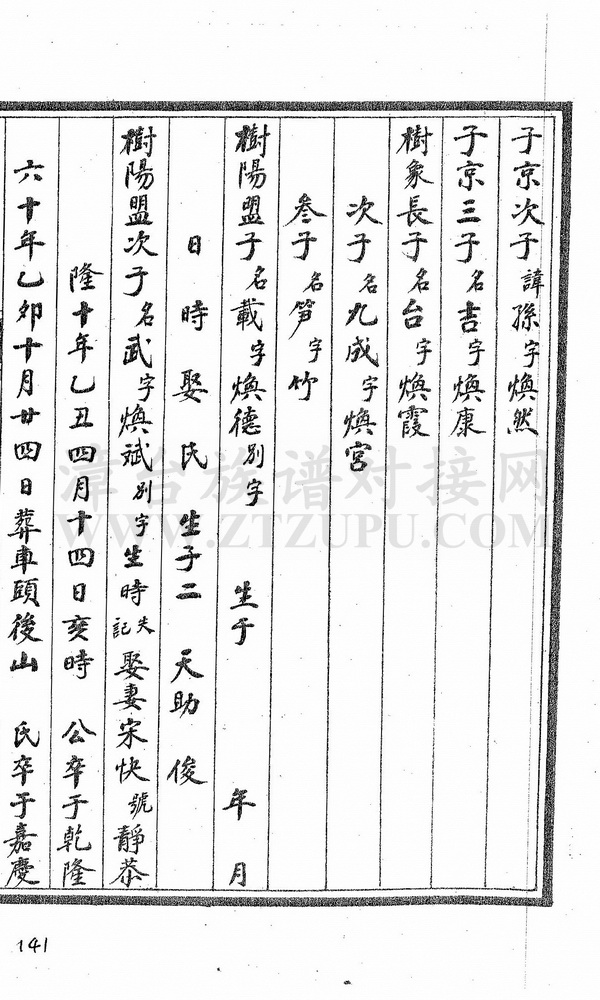 子京次子諱孫字煥然
子京三子名吉字煥康
樹象長子名台字煥霞
次子名九成字煥宮
叄子名笋字竹
樹陽盟子名載字煥德別字 生于 年 月
日 時 娶 氏 生子二 天助 俊
樹陽盟次子名武字煥斌別字生時失記娶妻宋快號靜恭
隆十年乙丑四月十四日亥時 公卒于乾隆
六十年乙卯十月廿四日葬車頭後山 氏卒于嘉慶
141
漳台族谱对接网
WWW.ZTZUPU.COM